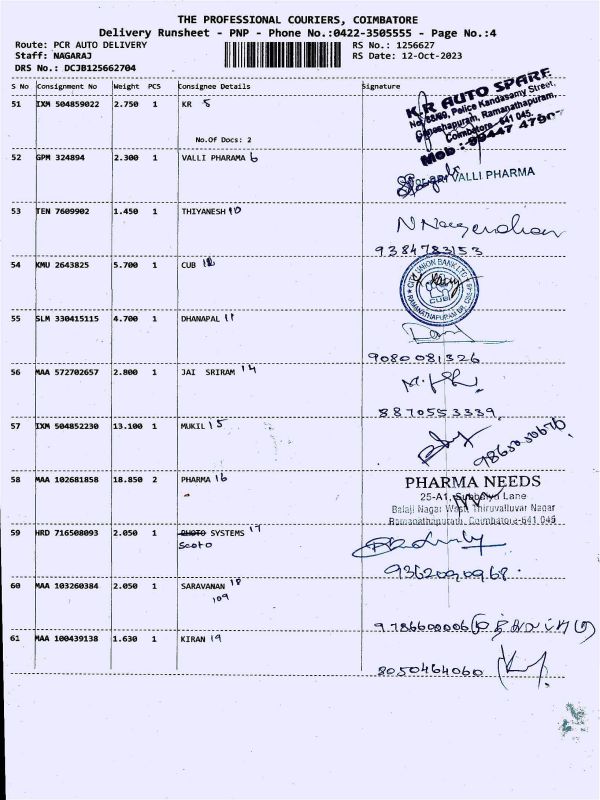 THE PROFESSIONAL COURIERS, COIMBATORE
Delivery Runsheet - PNP - Phone No.:0422-3505555 - Page No.:4
Route: PCR AUTO DELIVERY RS No.: 1256627
Staff: NAGARAJ RS Date: 12-Oct-2023
DRS No.: DCJB125662704
S No Consignment No Weight PCS Consignee Details Signature
51 IXM 504859022 2.750 1 KR 5
K.R AUTO SPARE
No. 88/90, Police Kandasamy Street,
Ganeshapuram, Ramanathapuram,
Coimbatore-641 045.
No.Of Docs: 2
Mob :
52 GPM 324894 2.300 1 VALLI PHARAMA 6
VALLI PHARMA
53 TEN 7609902 1.450 1 THIYANESH 10
N Nagendran
9384783153
54 KMU 2643825 5.700 1 CUB
CITY UNION BANK LTD
CUB
RAMANATHAPURAM BR.
55 SLM 330415115 4.700 1 DHANAPAL 11
9080081326
56 MAA 572702657 2.800 1 JAI SRIRAM 14
8870553339
57 IXM 504852230 13.100 1 MUKIL 15
58 MAA 102681858 18.850 2 PHARMA 16
PHARMA NEEDS
25-A1, Subbaiya Lane
Balaji Nagar West, Thiruvalluvar Nagar
Ramanathapuram, Coimbatore-641 045
59 HRD 716508093 2.050 1 PHOTO SYSTEMS 17
Scoto
9362090968.
60 MAA 103260384 2.050 1 SARAVANAN 18
109
9786600006
61 MAA 100439138 1.630 1 KIRAN 19
8050464060